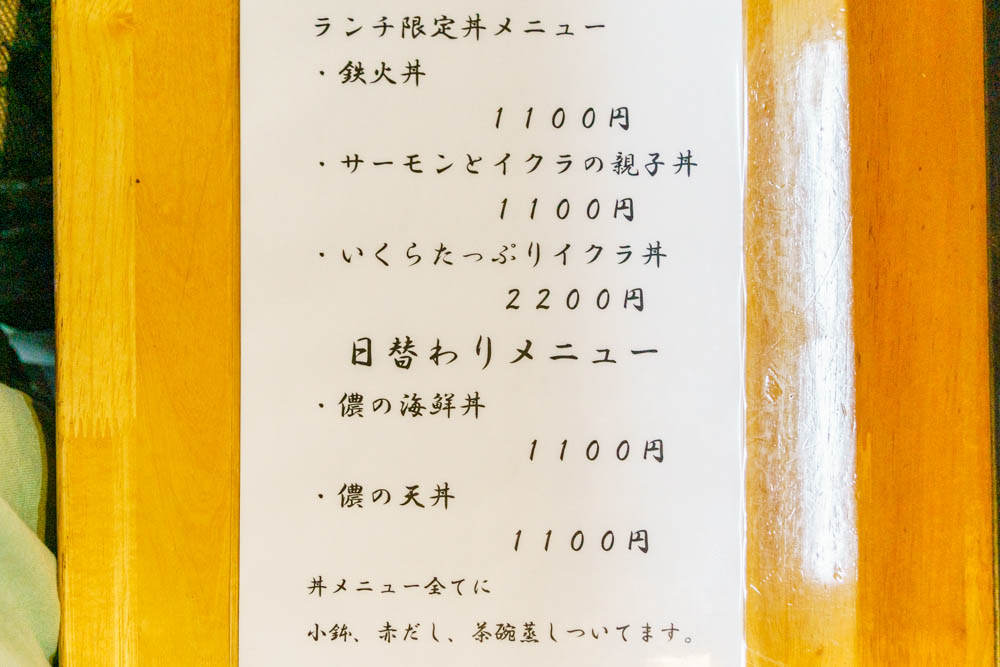 ランチ限定丼メニュー
・鉄火丼
１１００円
・サーモンとイクラの親子丼
１１００円
・いくらたっぷりイクラ丼
２２００円
日替わりメニュー
・儂の海鮮丼
１１００円
・儂の天丼
１１００円
丼メニュー全てに
小鉢、赤だし、茶碗蒸しついてます。